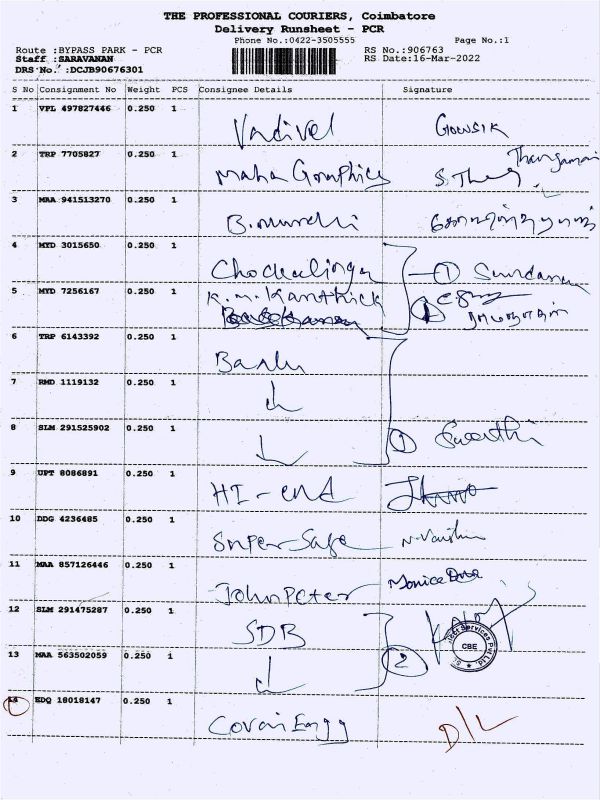 THE PROFESSIONAL COURIERS, Coimbatore
Delivery Runsheet - PCR
Phone No.:0422-3505555 Page No.:1
Route :BYPASS PARK - PCR RS No.:906763
Staff :SARAVANAN RS Date:16-Mar-2022
DRS No. :DCJB90676301
S No Consignment No Weight PCS Consignee Details Signature
1 VPL 497827446 0.250 1 Vadivel Gowsik
2 TRP 7705827 0.250 1 Maha Graphics
3 MAA 941513270 0.250 1
4 MYD 3015650 0.250 1 Chockalinga 1
5 MYD 7256167 0.250 1 K.M. Karthick 1
6 TRP 6143392 0.250 1
7 RMD 1119132 0.250 1
8 SLM 291525902 0.250 1 1
9 UPT 8086891 0.250 1 HI-end
10 DDG 4236485 0.250 1 Super Safe
11 MAA 857126446 0.250 1 John Peter
12 SLM 291475287 0.250 1 SDB
CBE
13 MAA 563502059 0.250 1 2
14 EDQ 18018147 0.250 1 Covai Engg D/L